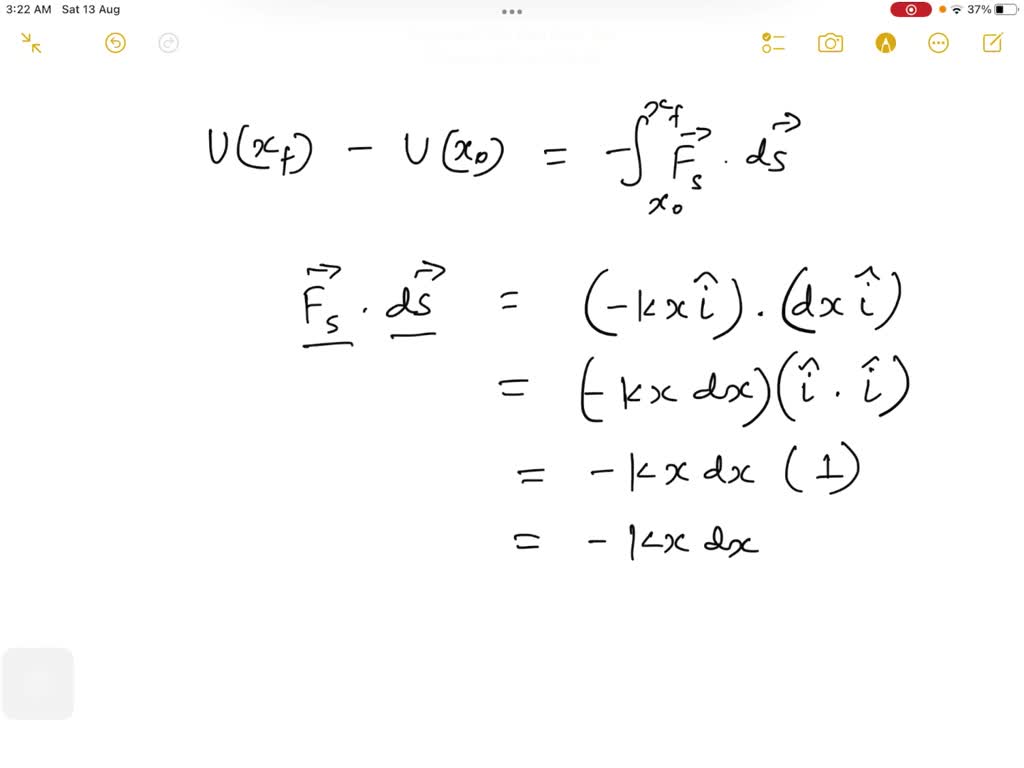 3:22 AM Sat 13 Aug 37%
U(x_f) - U(x_0) = -∫_{x_0}^{x_f} \vec{F_s} . \vec{ds}
\vec{F_s} . \vec{ds} = (-kx î) . (dx î)
= (-kx dx)(î . î)
= -kx dx (1)
= -kx dx